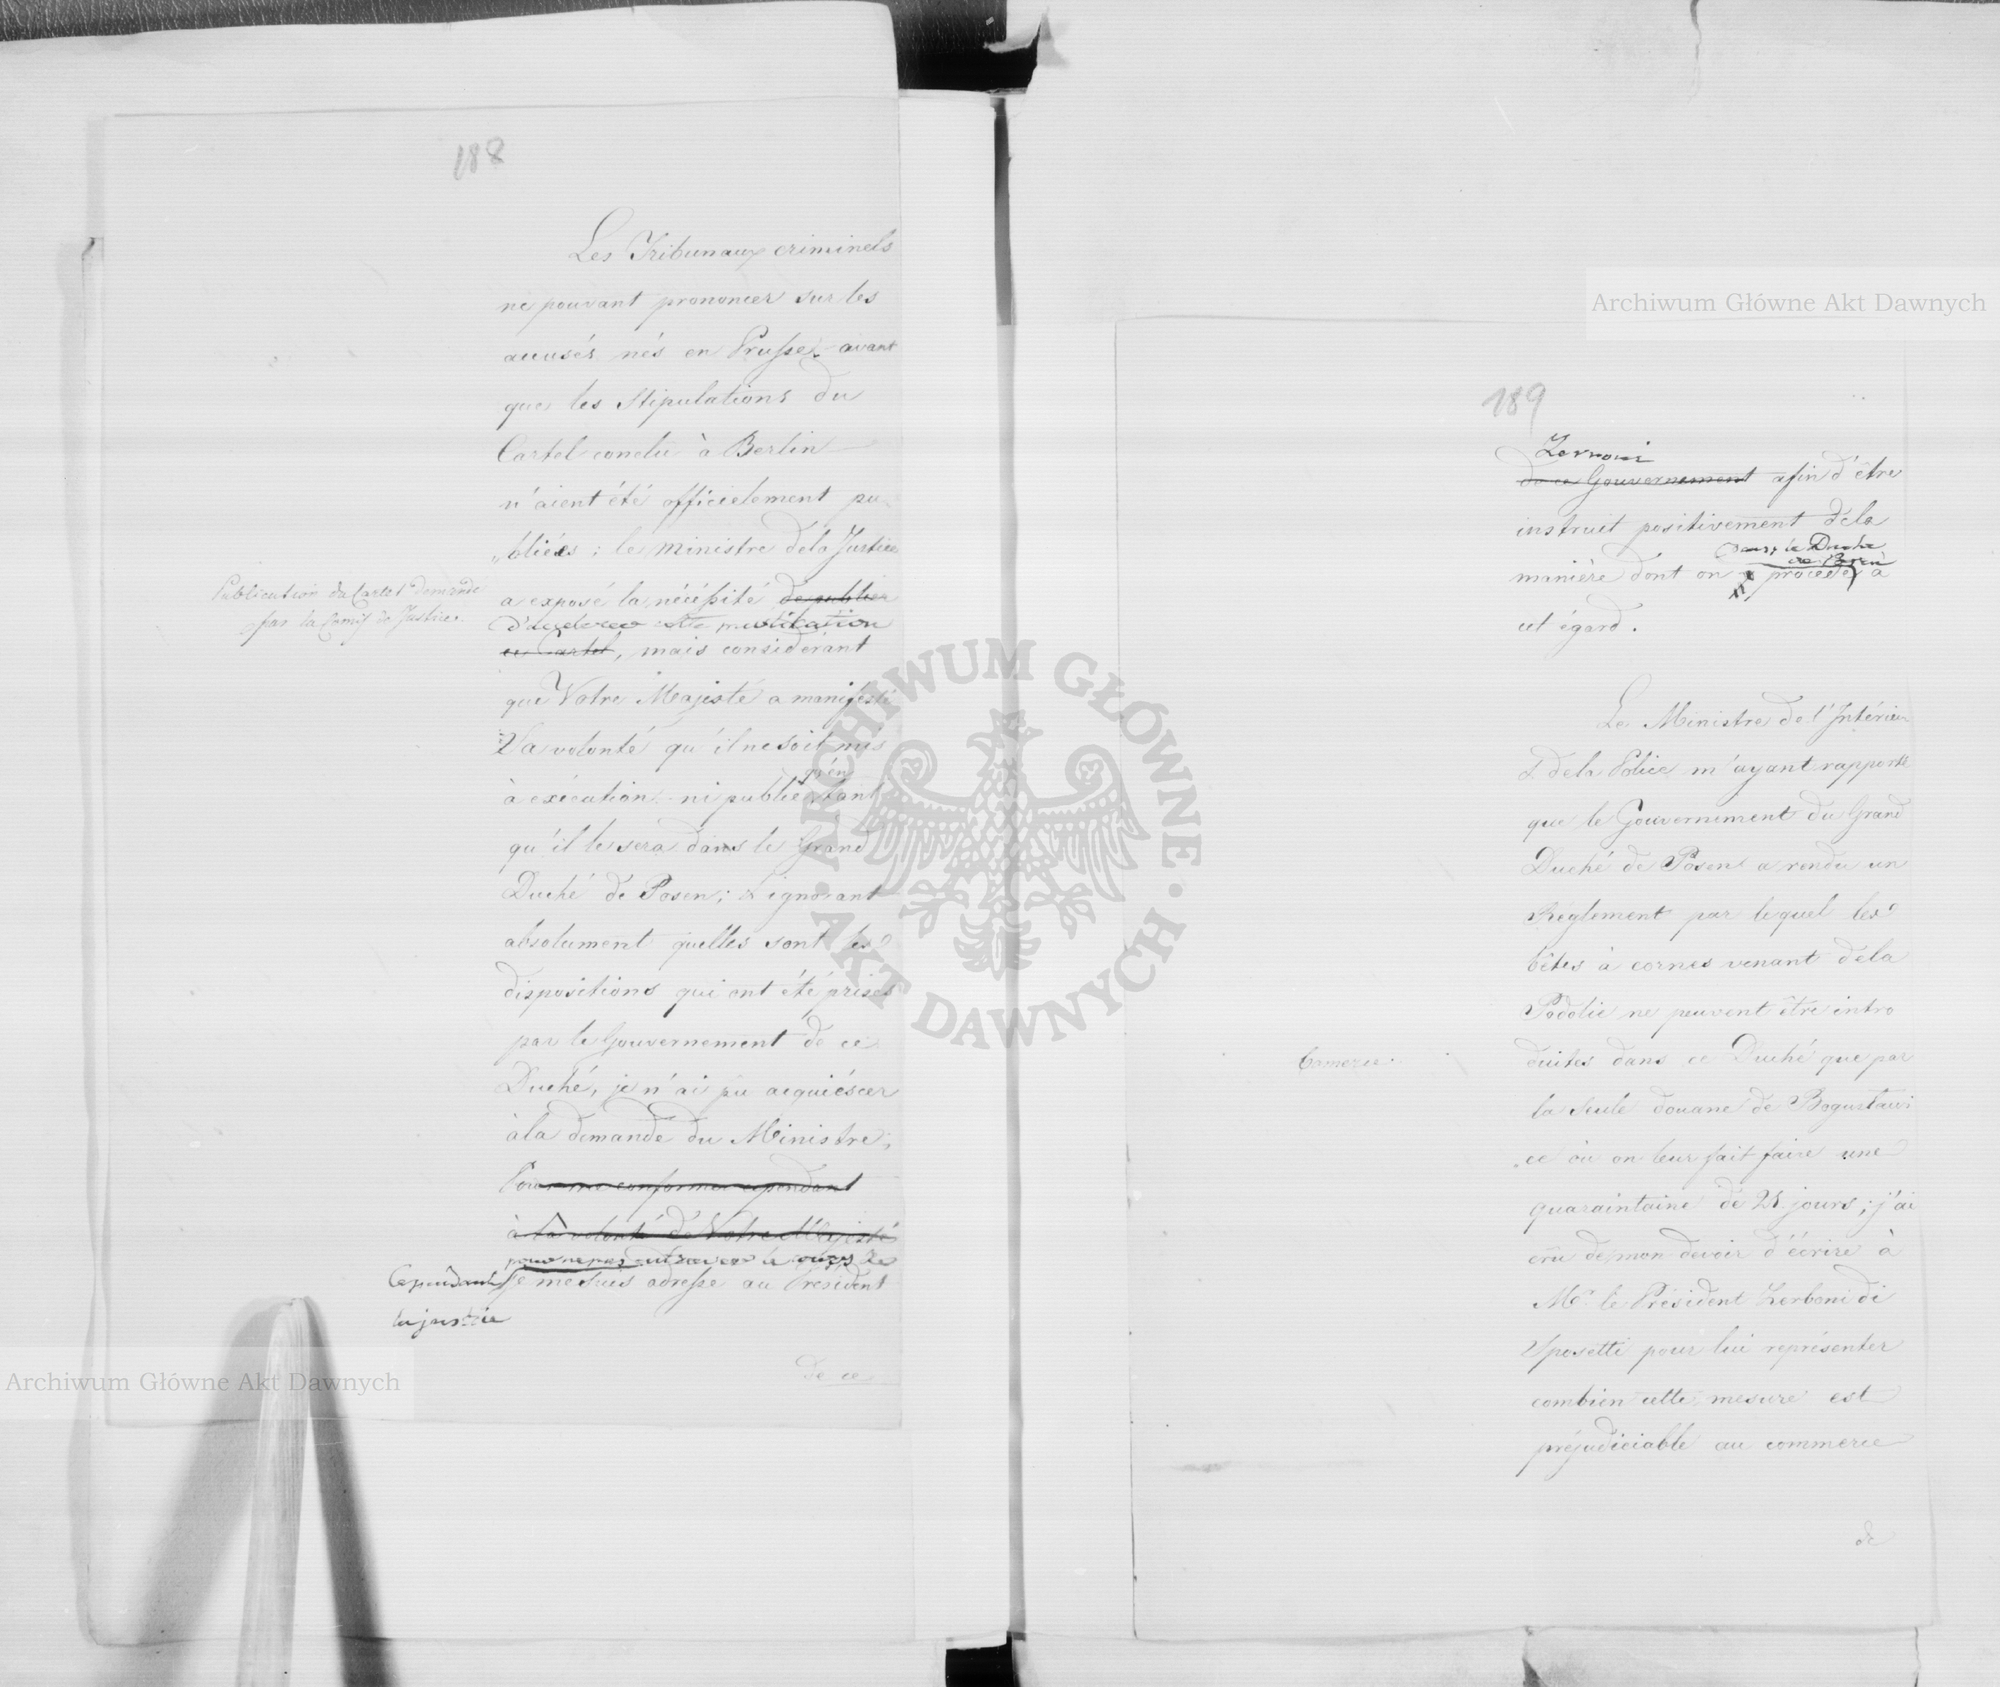 188
Les Tribunaux criminels
ne pouvant prononcer sur les
accusés nés en Prusse, avant
que les Stipulations du
Cartel conclu à Berlin
n'aient été officielement pu
„bliées; le Ministre dela Justice
Publication du Cartel demandé
par la Comiss de Justice.
a exposé la nécéssité de publier
d'accelerer cette publication
ce Cartel, mais considérant
que Votre Majesté a manifesté
Sa volonté qu'il ne soit mis
à exécution ni publié qu'en tant
qu'il le sera dans le Grand
Duché de Posen; & ignorant
absolument quelles sont les
dispositions qui ont été prises
par le Gouvernement de ce
Duché, je n'ai pu acquiéscer
à la demande du Ministre;
Pour me conformer cependant
à la volonté de Votre Majesté
pour ne pas entraver le cours de
Cependant je me suis adressé au Président
la justice
de ce
189
Zerboni
de ce Gouvernement afin d'être
instruit positivement dela
dans le Duché
de Posen
manière dont on procede à
cet égard.
Le Ministre de l'Intérieur
& dela Police m'ayant rapporté
que le Gouvernement du Grand
Duché de Posen a rendu un
Réglement par lequel les
bêtes à cornes venant dela
Podolie ne peuvent être intro
Comerce.
duites dans ce Duché que par
la seule douane de Boguslawi
ce où on leur fait faire une
quaraintaine de 21 jours; j'ai
cru de mon devoir d'écrire à
Mr. le Président Zerboni di
Sposetti pour lui représenter
combien cette mesure est
préjudiciable au commerce
de
Archiwum Główne Akt Dawnych
Archiwum Główne Akt Dawnych
ARCHIWUM GŁÓWNE AKT DAWNYCH